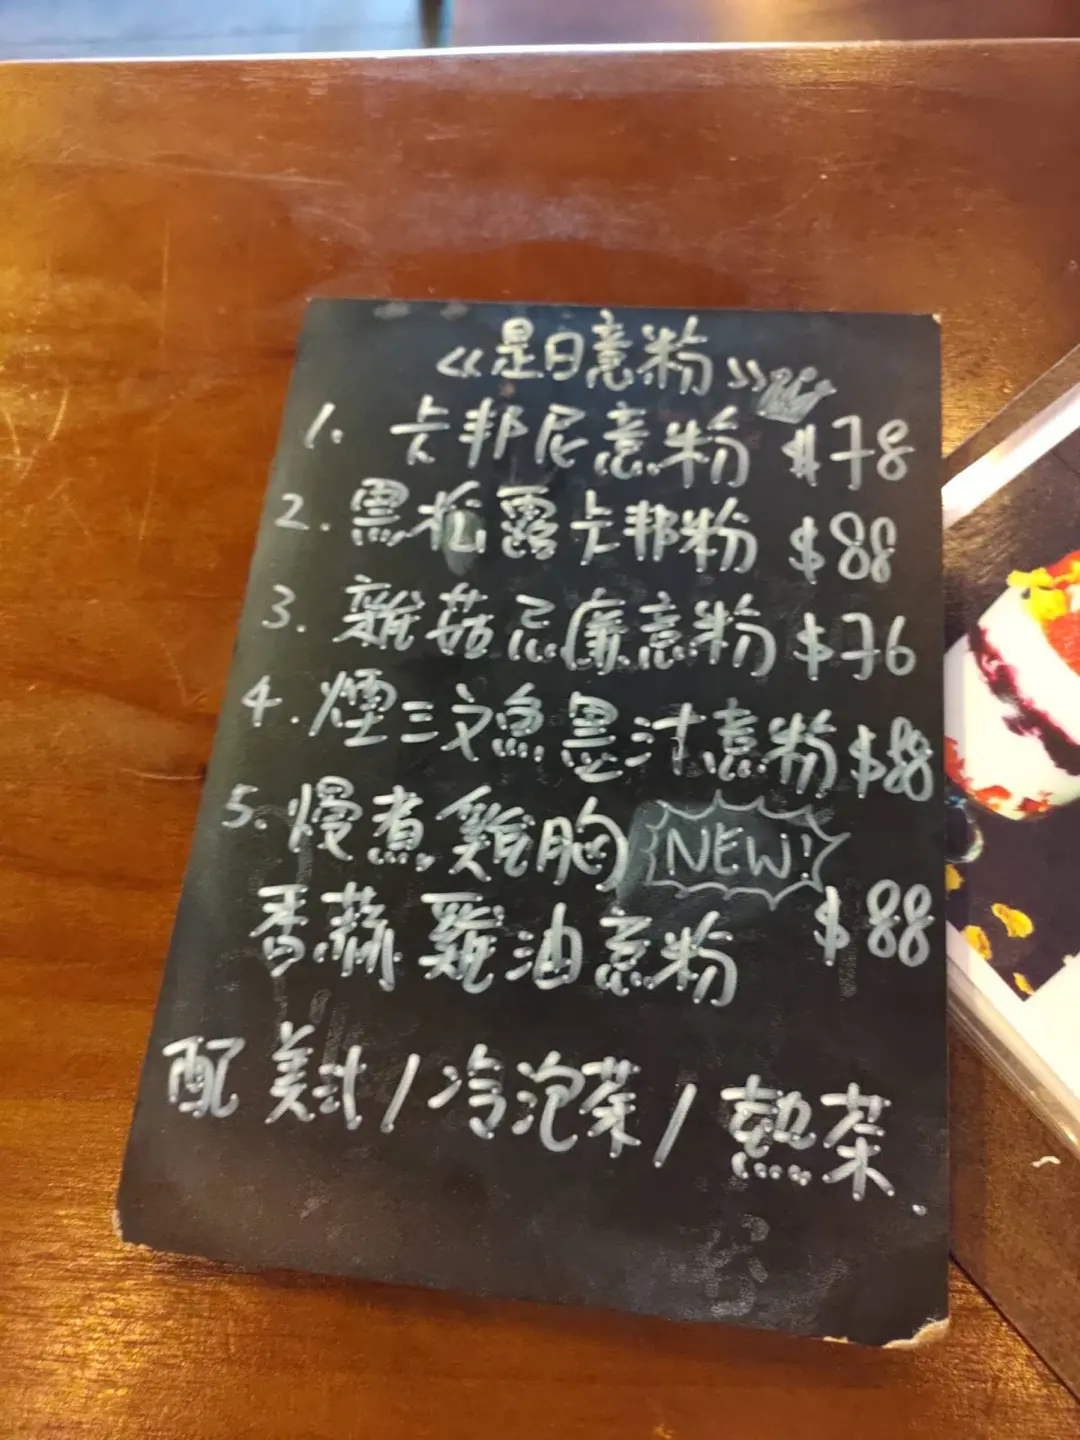 《是日意粉》
1. 卡邦尼意粉 $78
2. 黑松露卡邦粉 $88
3. 雜菇忌廉意粉 $76
4. 煙三文魚墨汁意粉 $88
5. 慢煮雞胸 NEW!
香蒜雞油意粉 $88
配 美式 / 冷泡茶 / 熱茶